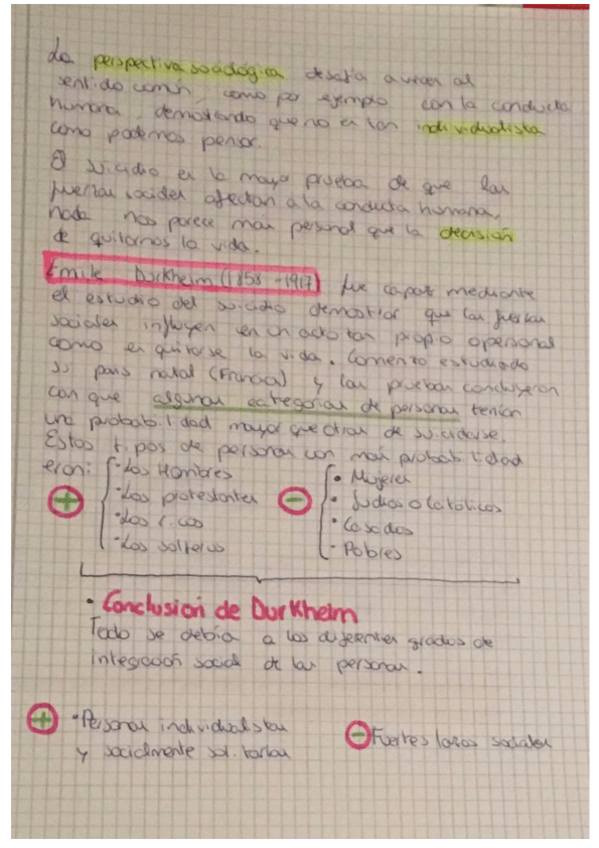 La perspectiva sociológica desafía a veces al
sentido común, como por ejemplo con la conducta
humana, demostrando que no es tan individualista
como podemos pensar.
El suicidio es la mayor prueba de que las
fuerzas sociales afectan a la conducta humana,
nada nos parece más personal que la decisión
de quitarnos la vida.
Emile Durkheim (1858-1917) fue capaz mediante
el estudio del suicidio demostrar que las fuerzas
sociales influyen en un acto tan propio o personal
como es quitarse la vida. Comenzó estudiado
su país natal (Francia) y las pruebas concluyeron
con que algunas categorías de personas tenían
una probabilidad mayor que otras de suicidarse.
Estos tipos de personas con más probabilidad
eran:
+
·Los Hombres
·Los protestantes
·Los ricos
·Los solteros
-
• Mujeres
• Judíos o Católicos
• Casados
- Pobres
• Conclusión de Durkheim
Todo se debía a los diferentes grados de
integración social de las personas.
+ •Personas individualistas
y socialmente solitarias
- Fuertes lazos sociales